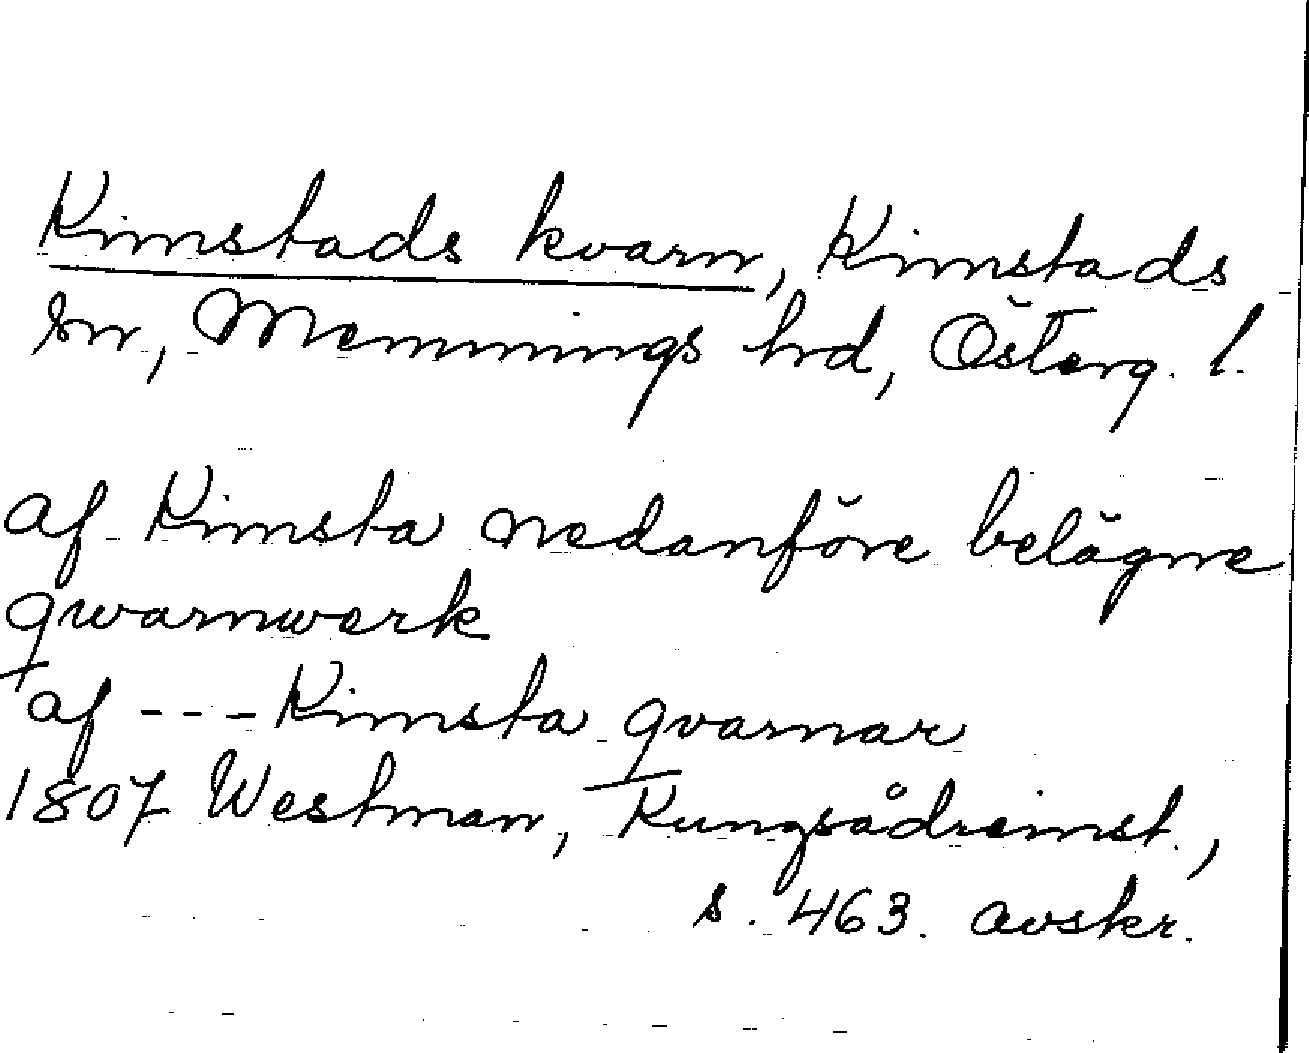 Kimstads kvarn, Kimstads
sn, Memmings hrd, Österg. l.
af Kimsta nedanföre belägne
qwarnwerk
af --- Kimsta qvarnar
1807 Westman, Kungsådreinst.,
s. 463. avskr.